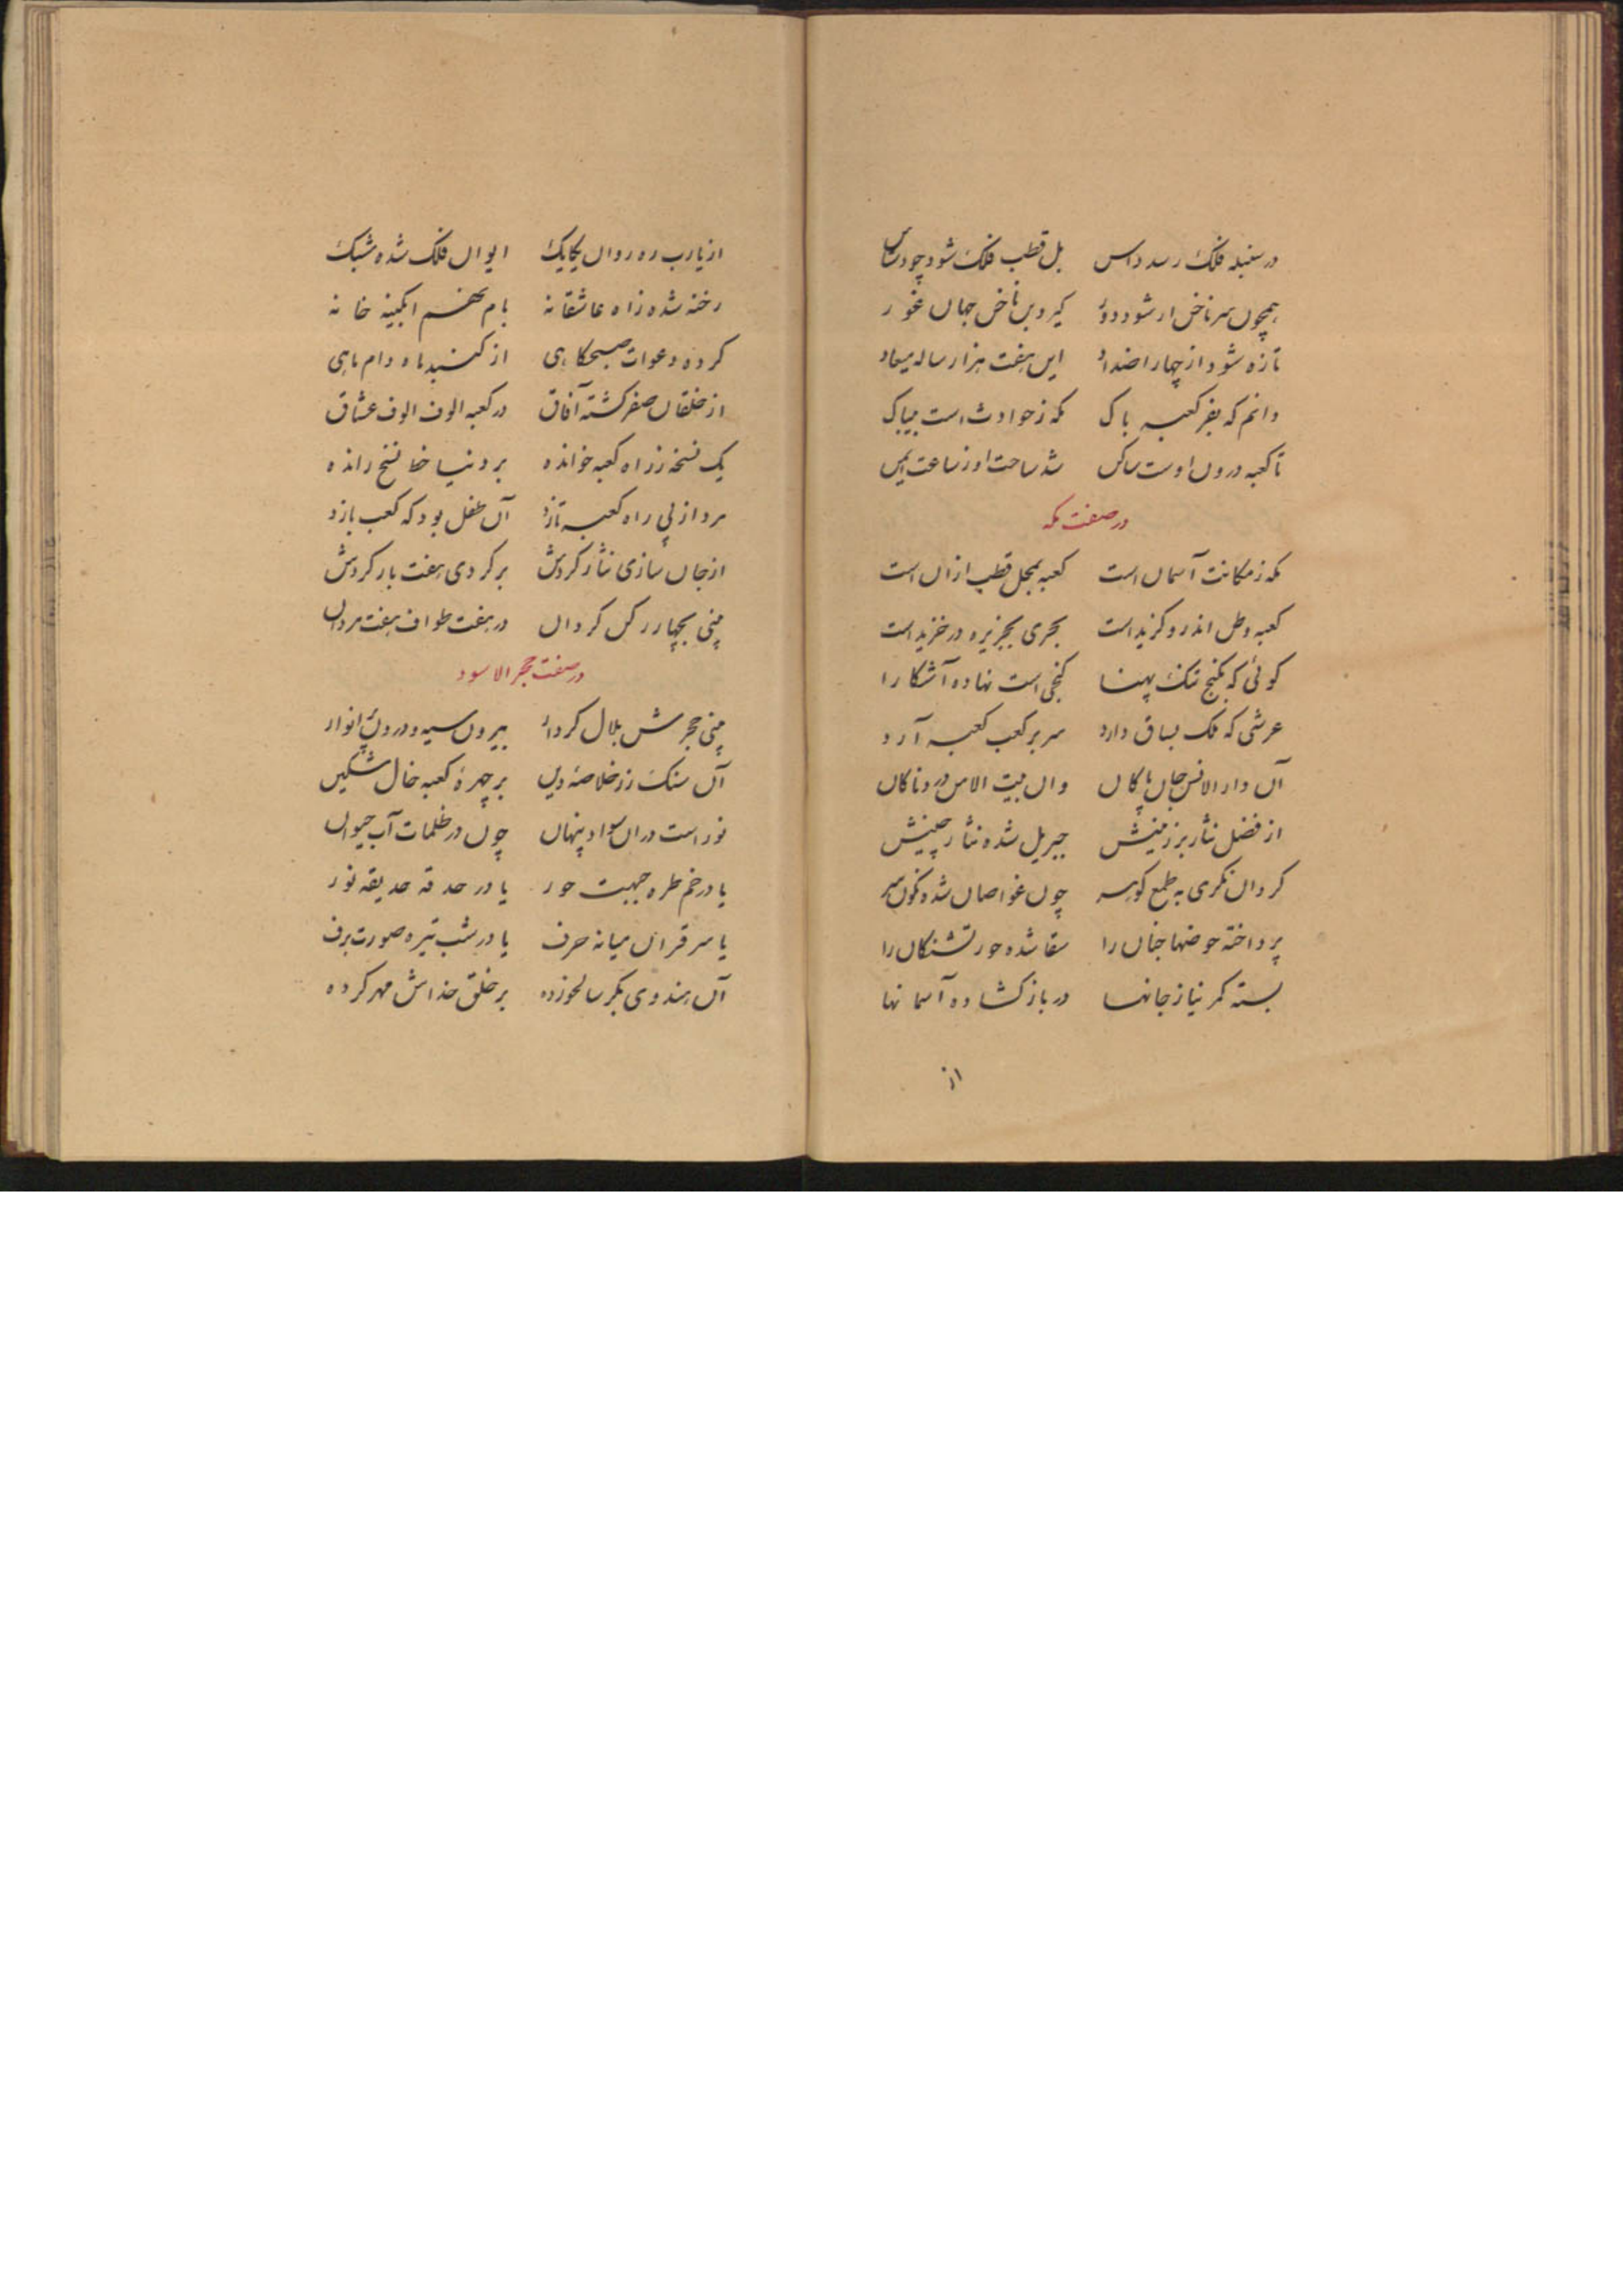 در سنبله فلک رسد داس بل قطب فلک شود چو در آس
همچون سر ناخن ار شود دور گیرد بن ناخن جهان غور
تازه شود از چهار اضداد این هفت هزار ساله میعاد
دانم که بفر کعبه پاک مکه ز حوادث است بیباک
تا کعبه درون اوست ساکن شد ساحت او ز ساعت ایمن
در صفت مکه
مکه ز مکانت آسمان است کعبه بمحل قطب ازان است
کعبه وطن اندرو گزیداست بحری بجزیره در خزیداست
گوئی که بکنج تنک پهنا گنجی است نهاده آشکارا
عرشی که فلک بساق دارد سر بر کعب کعبه آرد
آن دار الانس جان پاکان وان بیت الامن دردناکان
از فضل نثار بر زمینش جبریل شده نثار چینش
کردان نکری به طمع گوهر چون غواصان شده نگون سر
پرداخته حوضها جنان را سقا شده حور تشنکان را
بسته کمر نیاز جانها در باز کشاده آسمانها
از
از یارب ره روان یکایک ایوان فلک شده مشبک
رخنه شده ز آه عاشقانه بام نهم آبکینه خانه
کرده دعوات صبحکاهی از کنبد ماه دام ماهی
از خلقان صفر کشته آفاق در کعبه الوف الوف عشاق
یک نسخه ز راه کعبه خوانده بر دنیا خط نسخ رانده
مرد از پی راه کعبه تازد آن طفل بود که کعب بازد
از جان سازی نثار کردش بر کردی هفت بار کردش
بینی بچهار رکن کردان در هفت طواف هفت مردان
در صفت حجر الاسود
بینی حجرش بلال کردار بیرون سیه و درون پر انوار
آن سنک زر خلاصه دین بر چهره کعبه خال مشکین
نور است دران سواد پنهان چون در ظلمات آب حیوان
یا در خم طره جبهت حور یا در حدقه حدیقه نور
یا سر قران میانه حرف یا در شب تیره صورت برف
آن هندوی بکر سالخورده بر خلق خداش مهر کرده